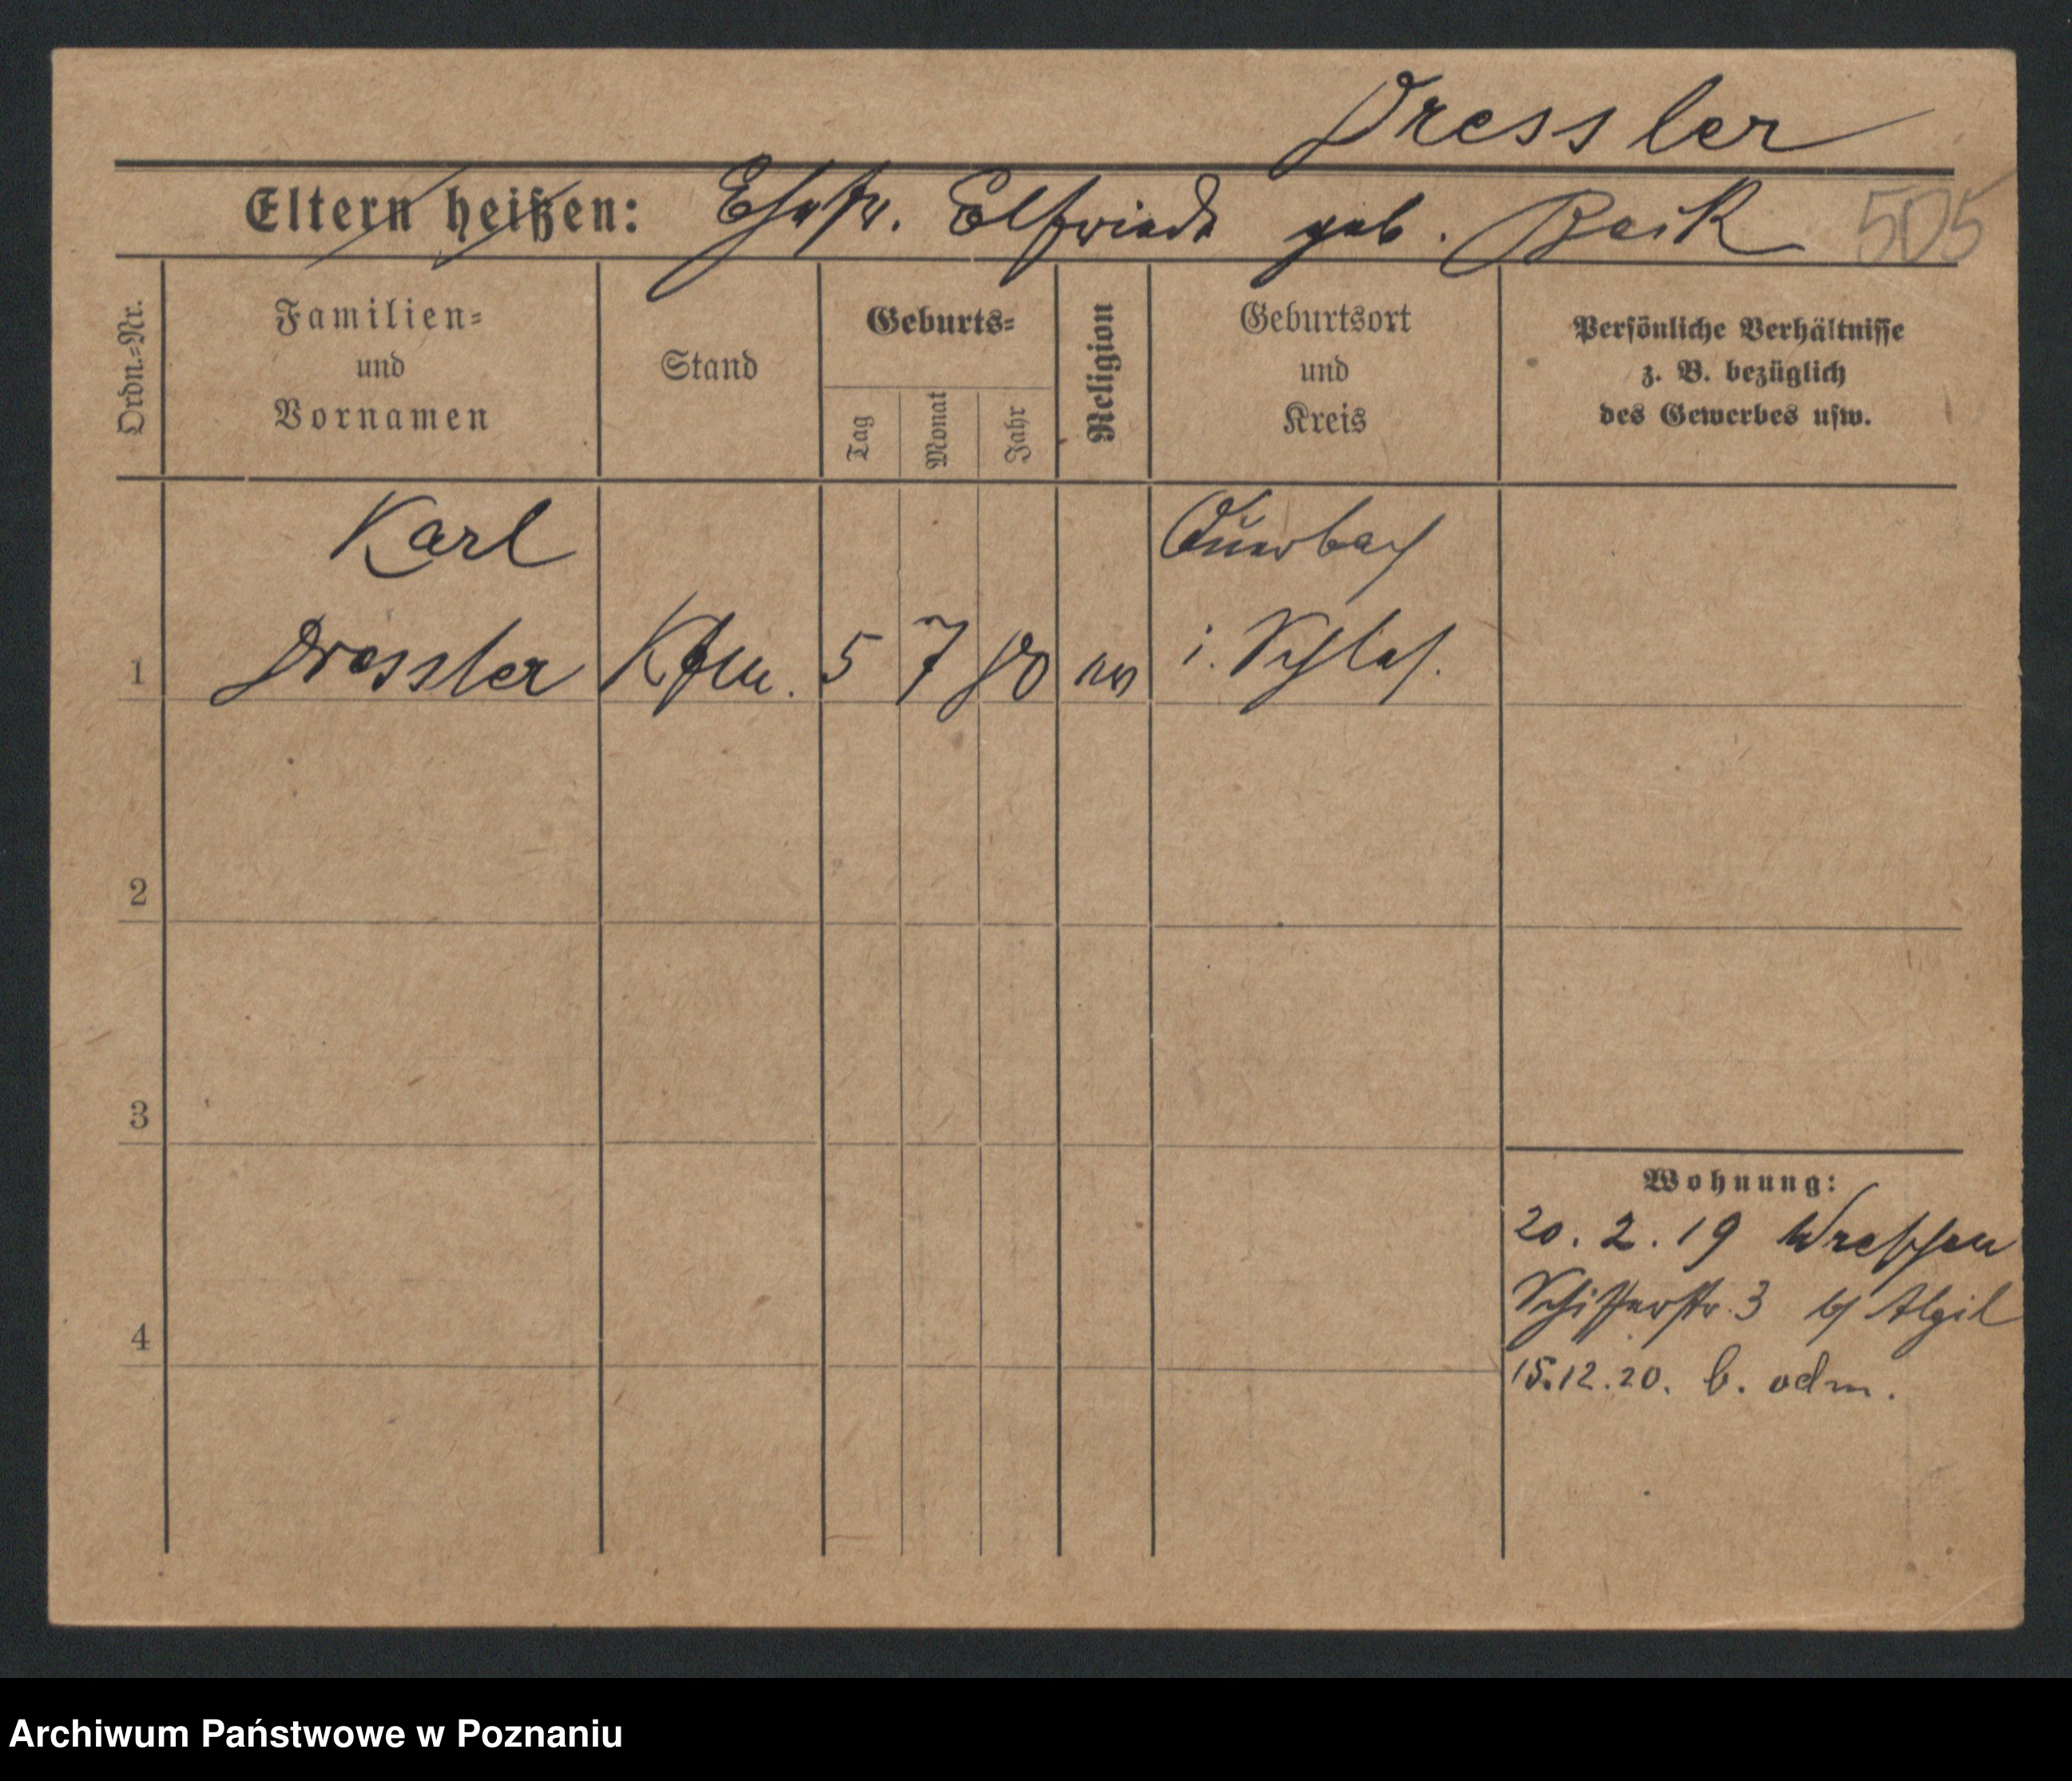 Dressler
Eltern heißen: Ehefr. Elfriede geb. 505
Ordn.-Nr.
Familien-
und
Vornamen
Stand
Geburts-
Tag
Monat
Jahr
Religion
Geburtsort
und
Kreis
Persönliche Verhältnisse
z. B. bezüglich
des Gewerbes usw.
Karl
Auerbach
1 Dressler Kfm. 5 7 80 ev i. Schles.
2
3
4
Wohnung:
20. 2. 19 Wreschen
Schifferstr. 3 b/
15.12.20. b. odm.
Archiwum Państwowe w Poznaniu